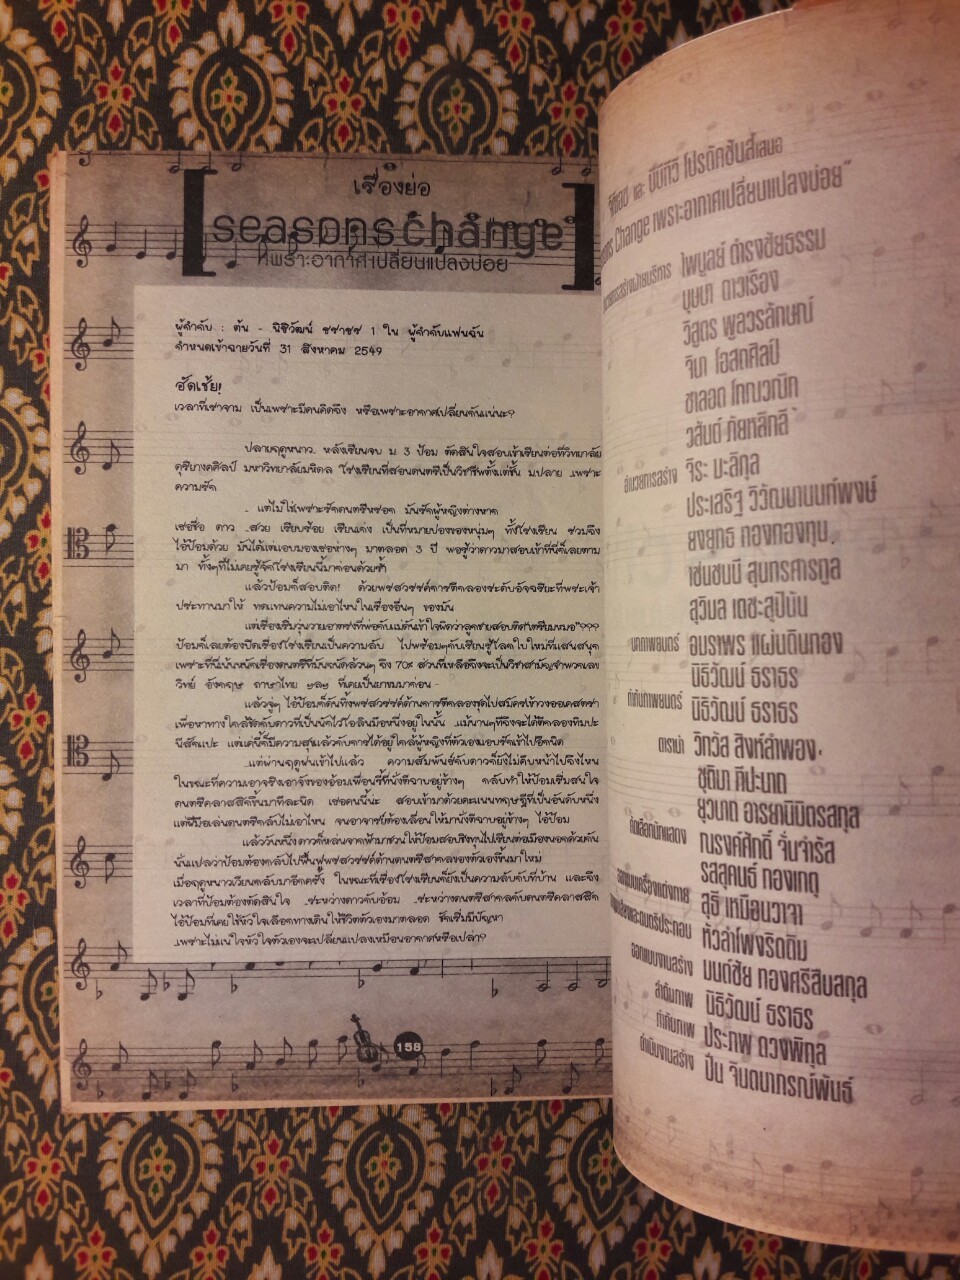 เรื่องย่อ
seasons change
เพราะอากาศเปลี่ยนแปลงบ่อย
ผู้กำกับ : ต้น - นิธิวัฒน์ ธราธร 1 ใน ผู้กำกับแฟนฉัน
กำหนดเข้าฉายวันที่ 31 สิงหาคม 2549
ฮัดเช้ย!
เวลาที่เราจาม เป็นเพราะมีคนคิดถึง หรือเพราะอากาศเปลี่ยนกันแน่นะ?
ปลายฤดูหนาว. หลังเรียนจบ ม 3 ป้อม ตัดสินใจสอบเข้าเรียนต่อที่วิทยาลัย
ดุริยางคศิลป์ มหาวิทยาลัยมหิดล โรงเรียนที่สอนดนตรีเป็นวิชาชีพตั้งแต่ชั้น ม.ปลาย ..เพราะ
ความรัก
.. แต่ไม่ใช่เพราะรักดนตรีหรอก มันรักผู้หญิงต่างหาก
เธอชื่อ ดาว ..สวย เรียบร้อย เรียนเก่ง เป็นที่หมายปองของหนุ่มๆ ทั้งโรงเรียน รวมถึง
ไอ้ป้อมด้วย มันได้แต่แอบมองเธอห่างๆ มาตลอด 3 ปี พอรู้ว่าดาวมาสอบเข้าที่นี่ก็เลยตาม
มา ทั้งๆที่ไม่เคยรู้จักโรงเรียนนี้มาก่อนด้วยซ้ำ
แล้วป้อมก็สอบติด! ด้วยพรสวรรค์การตีกลองระดับอัจฉริยะที่พระเจ้า
ประทานมาให้ ทดแทนความไม่เอาไหนในเรื่องอื่นๆ ของมัน
แต่เรื่องเริ่มวุ่นวายเอาตรงที่พ่อกับแม่ดันเข้าใจผิดว่าลูกชายสอบติด"เตรียมหมอ"???
ป้อมก็เลยต้องปิดเรื่องโรงเรียนเป็นความลับ ไปพร้อมๆกับเรียนรู้โลกใบใหม่ที่แสนสนุก
เพราะที่นี่เน้นหนักเรื่องดนตรีที่มันถนัดล้วนๆ ถึง 70% ส่วนที่เหลือถึงจะเป็นวิชาสามัญจำพวกเลข
วิทย์ อังกฤษ ภาษาไทย ฯลฯ ที่เคยเป็นยาขมมาก่อน
แล้วจู่ๆ ไอ้ป้อมก็ดันทิ้งพรสวรรค์ด้านการตีกลองชุดไปสมัครเข้าวงออเคสตรา
เพื่อหาทางใกล้ชิดกับดาวที่เป็นนักไวโอลินมือหนึ่งอยู่ในนั้น ..แม้นานๆทีถึงจะได้ตีกลองทิมปะ
นีสักแปะ แต่แค่นี้ก็มีความสุขแล้วกับการได้อยู่ใกล้ผู้หญิงที่ตัวเองแอบรักเข้าไปอีกนิด
...แต่ผ่านฤดูฝนเข้าไปแล้ว ความสัมพันธ์กับดาวก็ยังไม่คืบหน้าไปถึงไหน
ในขณะที่ความเอาจริงเอาจังของอ้อมเพื่อนซี้ที่นั่งตีฉาบอยู่ข้างๆ กลับทำให้ป้อมเริ่มสนใจ
ดนตรีคลาสสิกขึ้นมาทีละนิด เธอคนนี้น่ะ สอบเข้ามาด้วยคะแนนทฤษฎีที่เป็นอันดับหนึ่ง
แต่ฝีมือเล่นดนตรีกลับไม่เอาไหน จนอาจารย์ต้องเลื่อนให้มานั่งตีฉาบอยู่ข้างๆ ไอ้ป้อม
แล้ววันหนึ่งดาวก็หล่นจากฟ้ามาชวนให้ป้อมสอบชิงทุนไปเรียนต่อเมืองนอกด้วยกัน
นั่นแปลว่าป้อมต้องกลับไปฟื้นฟูพรสวรรค์ด้านดนตรีสากลของตัวเองขึ้นมาใหม่
เมื่อฤดูหนาวเวียนกลับมาอีกครั้ง ในขณะที่เรื่องโรงเรียนก็ยังเป็นความลับกับที่บ้าน และถึง
เวลาที่ป้อมต้องตัดสินใจ ..ระหว่างดาวกับอ้อม ..ระหว่างดนตรีสากลกับดนตรีคลาสสิก
ไอ้ป้อมที่เคยใช้หัวใจเลือกทางเดินให้ชีวิตตัวเองมาตลอด ชักเริ่มมีปัญหา
..เพราะไม่แน่ใจหัวใจตัวเองจะเปลี่ยนแปลงเหมือนอากาศหรือเปล่า?
158
จีทีเอช และ บีบีทีวี โปรดักชันส์เสนอ
ons Change เพราะอากาศเปลี่ยนแปลงบ่อย"
ไพบูลย์ ดำรงชัยธรรม
บุษบา ดาวเรือง
วิสูตร พูลวรลักษณ์
จินา โอสถศิลป์
ชาลอต โทณวณิก
วสันต์ ภัยหลีกลี้
อำนวยการสร้าง จิระ มะลิกุล
ประเสริฐ วิวัฒนานนท์พงษ์
ยงยุทธ ทองกองทุน
เช่นชนนี สุนทรศารทูล
สุวิมล เตชะสุปินัน
บทภาพยนตร์ อมราพร แผ่นดินทอง
นิธิวัฒน์ ธราธร
กำกับภาพยนตร์ นิธิวัฒน์ ธราธร
ดารานำ วิทวัส สิงห์ลำพอง
ชุติมา ทีปะนาถ
ยุวนาถ อารยะนิมิตรสกุล
คัดเลือกนักแสดง ณรงค์ศักดิ์ วั่นจำรัส
รสสุคนธ์ กองเกตุ
ออกแบบเครื่องแต่งกาย สุธี เหมือนวาจา
และดนตรีประกอบ หัวลำโพงริดดิม
ออกแบบงานสร้าง มนต์ชัย ทองศรีสืบสกุล
ลำดับภาพ นิธิวัฒน์ ธราธร
กำกับภาพ ประภพ ดวงพิกุล
ดำเนินงานสร้าง ปิ่น จินตนาภรณ์พันธ์